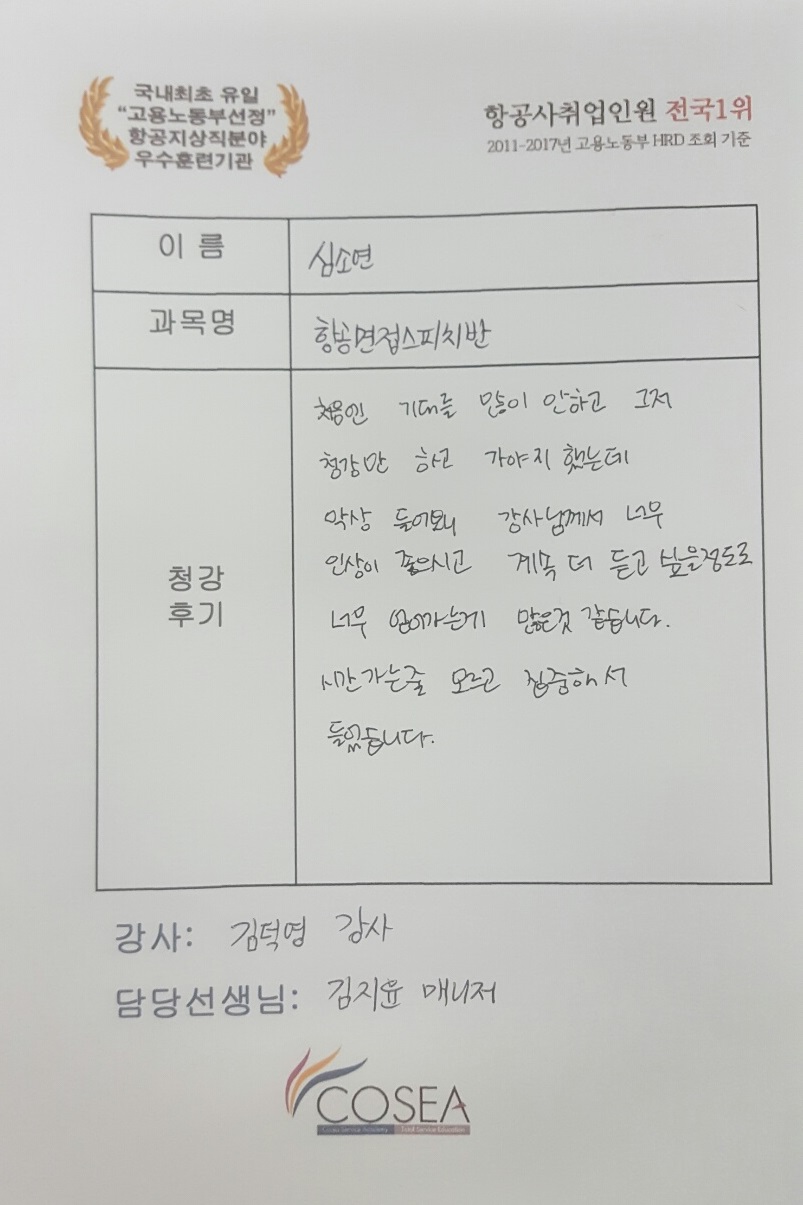 국내최초 유일
“고용노동부선정”
항공지상직분야
우수훈련기관
항공사취업인원 전국1위
2011-2017년 고용노동부 HRD 조회 기준
이 름
심소연
과목명
항공면접스피치반
청강
후기
처음엔 기대를 많이 안하고 그저
청강만 하고 가야지 했는데
막상 들어보니 강사님께서 너무
인상이 좋으시고 계속 더 듣고 싶을정도로
너무 얻어가는게 많은것 같습니다.
시간가는줄 모르고 집중해서
들었습니다.
강사: 김덕영 강사
담당선생님: 김지윤 매니저
COSEA
Korea Service Academy Total Service Education